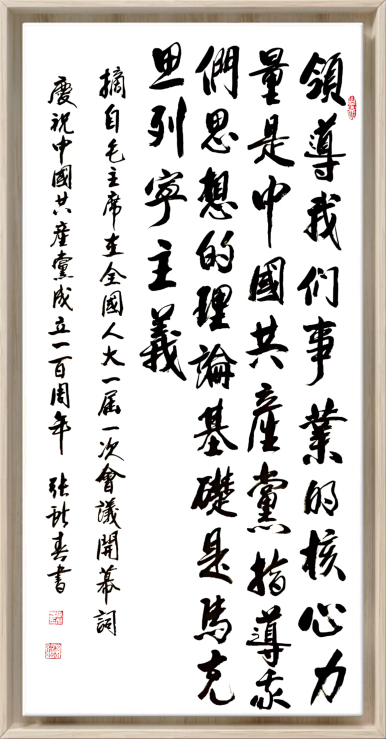 領導我们事業的核心力
量是中國共産黨指導我
們思想的理論基礎是馬克
思列寧主義
摘自毛主席在全國人大一届一次會議開幕詞
慶祝中國共産黨成立一百周年 張 春書